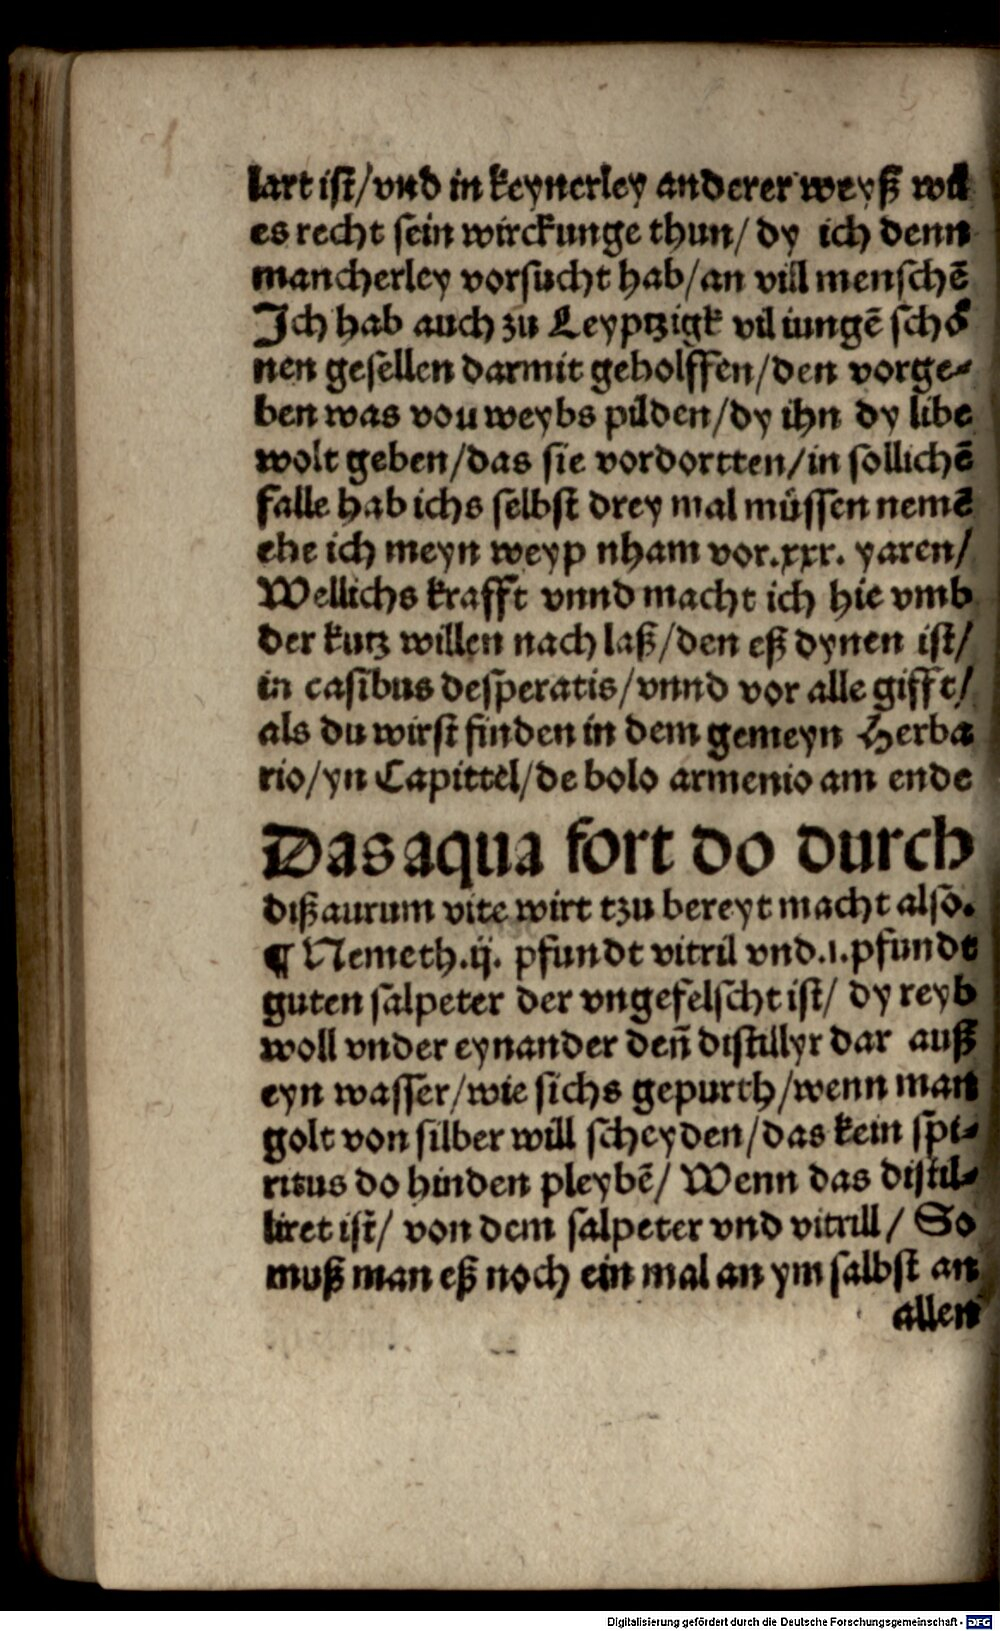 lart ist/vnd in keynerley anderer weyß wil
es recht sein wirckunge thun/ dy ich denn
mancherley vorsucht hab/an vill menschē
Ich hab auch zu Leyptzigk vil iungē schö
nen gesellen darmit geholffen/den vorge-
ben was vou weybs pilden/dy ihn dy libe
wolt geben/das sie vordortten/in sollichē
falle hab ichs selbst drey mal müssen nemē
ehe ich meyn weyp nham vor.xxx. yaren/
Wellichs krafft vnnd macht ich hie vmb
der kutz willen nach laß/den eß dynen ist/
in casibus desperatis/vnnd vor alle gifft/
als du wirst finden in dem gemeyn Herba
rio/yn Capittel/de bolo armenio am ende
Das aqua fort do durch
diß aurum vite wirt tzu bereyt macht also.
¶ Nemeth.ij. pfundt vitril vnd.i.pfundt
guten salpeter der vngefelscht ist/ dy reyb
woll vnder eynander deñ distillyr dar auß
eyn wasser/wie sichs gepurth/wenn man
golt von silber will scheyden/das kein spi-
ritus do hinden pleybē/ Wenn das distil-
liret ist/ von dem salpeter vnd vitrill/ So
muß man eß noch ein mal an ym salbst an
allen
Digitalisierung gefördert durch die Deutsche Forschungsgemeinschaft - DFG